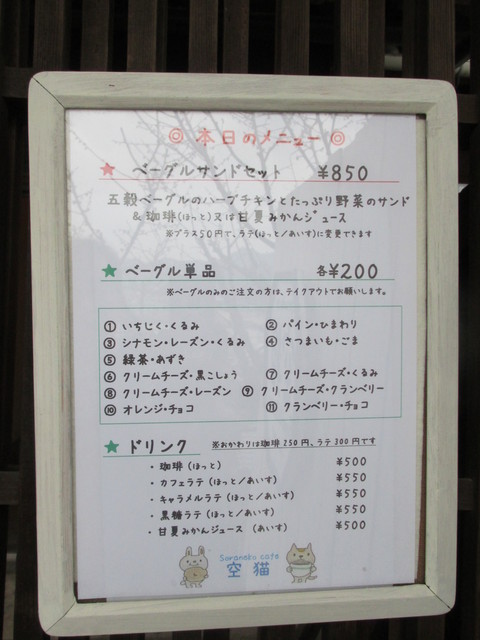 ◎ 本日のメニュー ◎
★ ベーグルサンドセット ¥850
五穀ベーグルのハーブチキンとたっぷり野菜のサンド
& 珈琲(ほっと)又は甘夏みかんジュース
※プラス50円で、ラテ(ほっと/あいす)に変更できます
★ ベーグル単品 各¥200
※ベーグルのみのご注文の方は、テイクアウトでお願いします。
① いちじく・くるみ ② パイン・ひまわり
③ シナモン・レーズン・くるみ ④ さつまいも・ごま
⑤ 緑茶・あずき
⑥ クリームチーズ・黒こしょう ⑦ クリームチーズ・くるみ
⑧ クリームチーズ・レーズン ⑨ クリームチーズ・クランベリー
⑩ オレンジ・チョコ ⑪ クランベリー・チョコ
★ ドリンク ※おかわりは珈琲250円、ラテ300円です
・珈琲(ほっと) ¥500
・カフェラテ(ほっと/あいす) ¥550
・キャラメルラテ(ほっと/あいす) ¥550
・黒糖ラテ(ほっと/あいす) ¥550
・甘夏みかんジュース (あいす) ¥500
Soraneko cafe
空猫